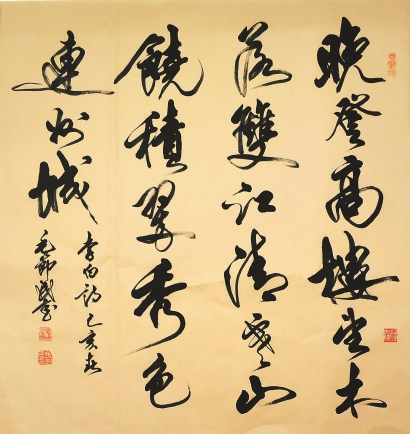 晚登高樓望木
落雙江清寒山
饒積翠秀色
連州城
李白詩己亥